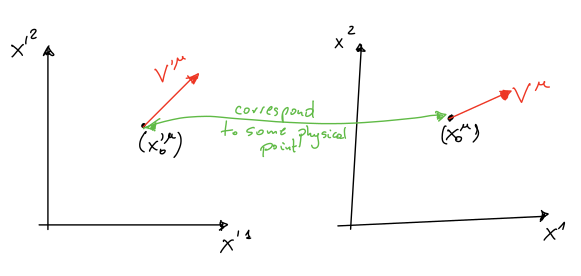 x'²
V'^μ
(x₀'^μ)
x'¹
correspond
to some physical
point
x²
V^μ
(x₀^μ)
x¹